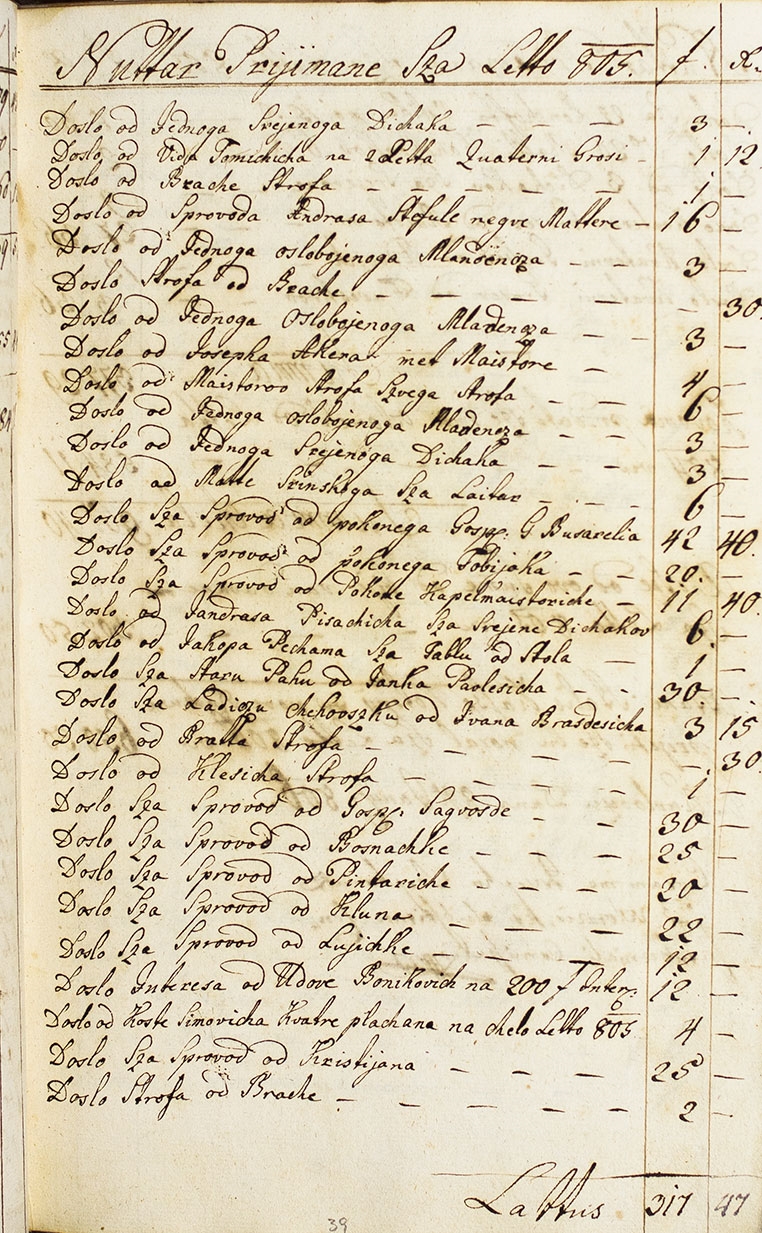 Nuttar Prijimane Sza Letto 805. f. x.
Doslo od Jednoga Srejenoga Dichaka — — — 3 —
Doslo od Vida Tomichicha na 2 Letta Quaterni Grosi — 1 12
Doslo od Brache Strofa — — — — — 1 —
Doslo od Sprovoda Andrasa Stefule negve Mattere — 16 —
Doslo od Jednoga oslobojenoga Mladencza — — 3 —
Doslo Strofa od Brache — — — — — — 30.
Doslo od Jednoga Oslobojenoga Mladencza — — 3 —
Doslo od Josepha Akera met Maistore — 4 —
Doslo od Maistorov Strofa Szvega Strofa — — 6 —
Doslo od Jednoga oslobojenoga Mladencza — — 3 —
Doslo od Jednoga Srejenoga Dichaka — — 3 —
Doslo od Matte Srinskoga Sza Laitar — — — 6 —
Doslo Sza Sprovod od pokonega Gosp: G Busarelia 42 40.
Doslo Sza Sprovod od pokonega Tobijaka — — 20. —
Doslo Sza Sprovod od Pokone Kapelmaistoriche — 11 40.
Doslo od Jandrasa Pisachicha Sza Srejene Dichakov 6. —
Doslo od Jakopa Pechama Sza Tablu od Stola — 1 —
Doslo Sza Staru Pahu od Janka Pavlesicha — — 30. —
Doslo Sza Ladiczu chehovszku od Ivana Brasdesicha 3 15
Doslo od Bratta Strofa — — — — — — 30.
Doslo od Klesicha Strofa — — — — 1 —
Doslo Sza Sprovod od Gosp: Sagvosde — — 30 —
Doslo Sza Sprovod od Bosnachke — — — 25 —
Doslo Sza Sprovod od Pintariche — — — 20 —
Doslo Sza Sprovod od Kluna — — — — 22 —
Doslo Sza Sprovod od Lujichke — — — 12 —
Doslo Interesa od Udove Bonikovich na 200 f Inter: 12 —
Doslo od Koste Simovicha Kvatre plachana na chelo Letto 805 4 —
Doslo Sza Sprovod od Kristijana — — — — 25 —
Doslo Strofa od Brache — — — — — 2 —
Lattus 317 47
39